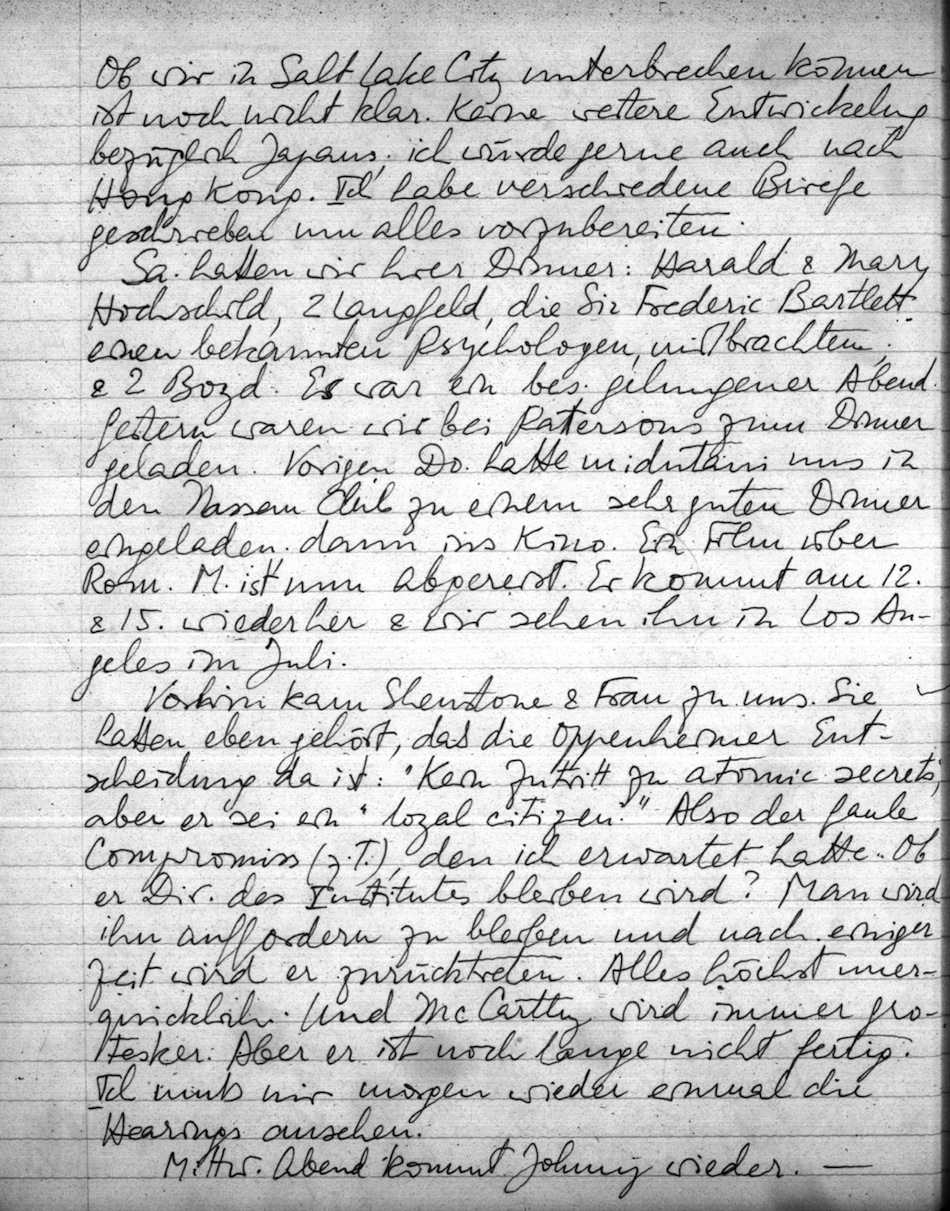 Ob wir in Salt Lake City unterbrechen können
ist noch nicht klar. Keine weitere Entwickelung
bezüglich Japans; ich würde gerne auch nach
Hong Kong. Ich habe verschiedene Briefe
geschrieben um alles vorzubereiten.
Sa. hatten wir hier Dinner: Harald & Mary
Hochschild, 2 Langfeld, die Sir Frederic Bartlett
einen bekannten Psychologen, mitbrachten,
& 2 Boyd. Es war ein bes. gelungener Abend.
Gestern waren wir bei Patersons zum Dinner
geladen. Vorigen Do. hatte midutani uns in
den Nassau Club zu einem sehr guten Dinner
eingeladen. dann ins Kino. Ein Film über
Rom. M. ist nun abgereist. Er kommt am 12.
& 15. wieder her & wir sehen ihn in Los An-
geles im Juli.
Vorhin kam Shenstone & Frau zu uns. Sie
hatten eben gehört, daß die Oppenheimer Ent-
scheidung da ist: "Kein Zutritt zu atomic secrets",
aber er sei ein "loyal citizen." Also der faule
Compromiss (z.T.), den ich erwartet hatte. Ob
er Dir. des Institutes bleiben wird? Man wird
ihn auffordern zu bleiben und nach einiger
Zeit wird er zurücktreten. Alles höchst uner-
quicklich. Und McCarthy wird immer gro-
tesker. Aber er ist noch lange nicht fertig.
Ich muß mir morgen wieder einmal die
Hearings ansehen.
Mittw. Abend kommt Johnny wieder. —